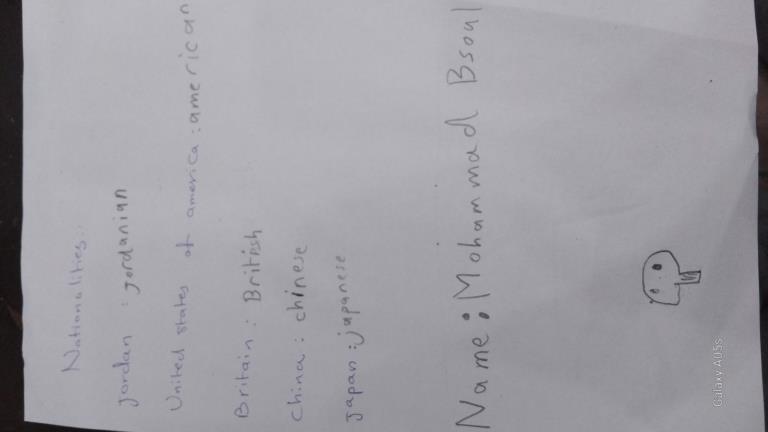 Nationalities:
Jordan : jordanian
United states of america : american
Britain : British
China : chinese
Japan : japanese
Name : Mohammad Bsoul
Galaxy A05s